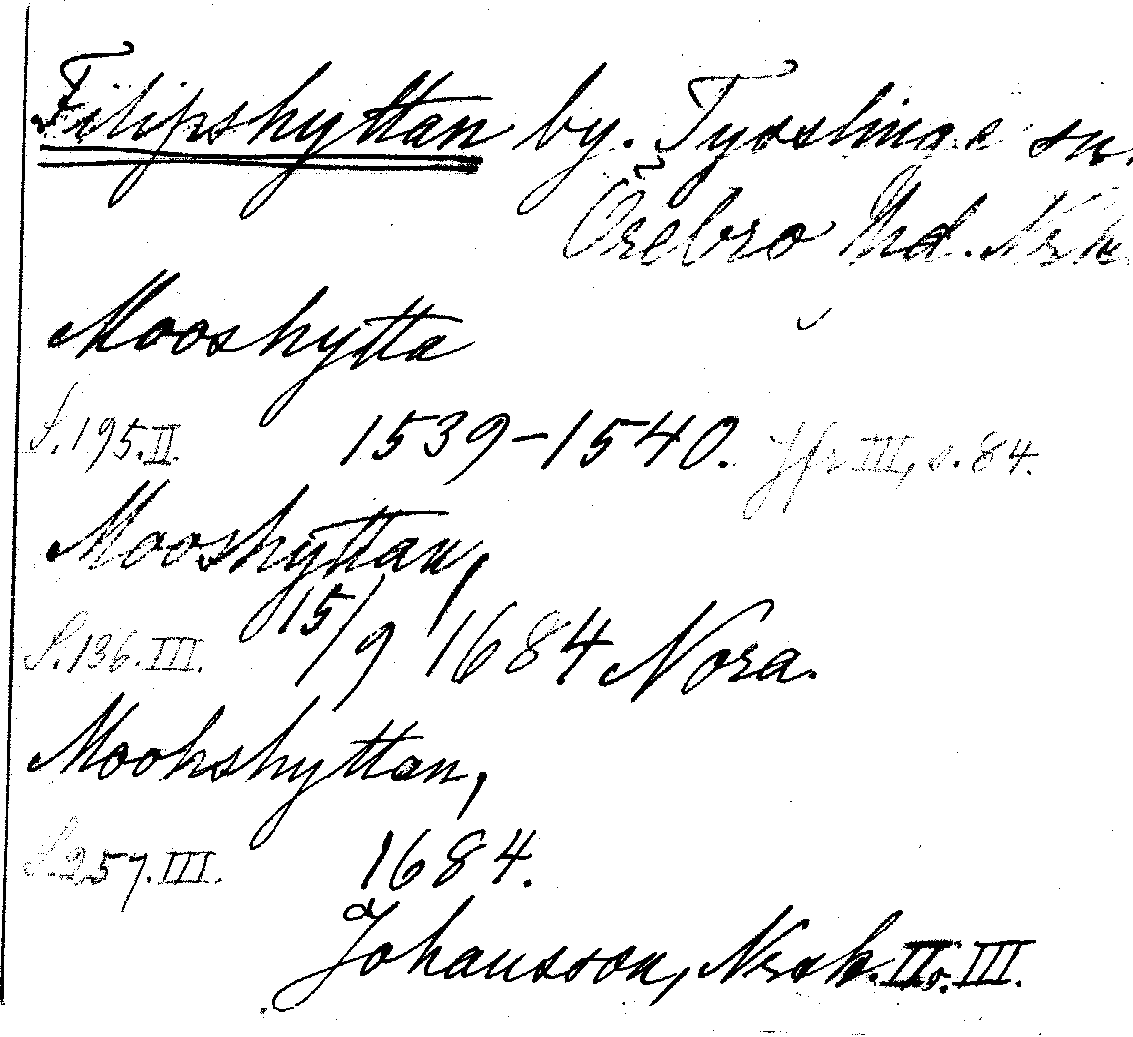 Filipshyttan by. Tysslinge sn.
Örebro hd. Nrk.
Mooshytta
S. 195. II. 1539-1540. Jfr III, s. 84.
Mooshyttan,
S. 136. III. 15/9 1684 Nora.
Mookshyttan,
S. 257. III. 1684.
Johansson, Nrsk. II o. III.